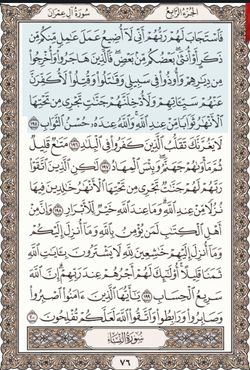 سُورَةُ آلِ عِمْرَانَ
الجُزْءُ الرَّابِعُ
فَاسْتَجَابَ لَهُمْ رَبُّهُمْ أَنِّي لَا أُضِيعُ عَمَلَ عَامِلٍ مِنْكُمْ مِنْ
ذَكَرٍ أَوْ أُنْثَى بَعْضُكُمْ مِنْ بَعْضٍ فَالَّذِينَ هَاجَرُوا وَأُخْرِجُوا
مِنْ دِيَارِهِمْ وَأُوذُوا فِي سَبِيلِي وَقَاتَلُوا وَقُتِلُوا لَأُكَفِّرَنَّ
عَنْهُمْ سَيِّئَاتِهِمْ وَلَأُدْخِلَنَّهُمْ جَنَّاتٍ تَجْرِي مِنْ تَحْتِهَا
الْأَنْهَارُ ثَوَابًا مِنْ عِنْدِ اللَّهِ وَاللَّهُ عِنْدَهُ حُسْنُ الثَّوَابِ ١٩٥
لَا يَغُرَّنَّكَ تَقَلُّبُ الَّذِينَ كَفَرُوا فِي الْبِلَادِ ١٩٦ مَتَاعٌ قَلِيلٌ
ثُمَّ مَأْوَاهُمْ جَهَنَّمُ وَبِئْسَ الْمِهَادُ ١٩٧ لَكِنِ الَّذِينَ اتَّقَوْا
رَبَّهُمْ لَهُمْ جَنَّاتٌ تَجْرِي مِنْ تَحْتِهَا الْأَنْهَارُ خَالِدِينَ فِيهَا
نُزُلًا مِنْ عِنْدِ اللَّهِ وَمَا عِنْدَ اللَّهِ خَيْرٌ لِلْأَبْرَارِ ١٩٨ وَإِنَّ مِنْ
أَهْلِ الْكِتَابِ لَمَنْ يُؤْمِنُ بِاللَّهِ وَمَا أُنْزِلَ إِلَيْكُمْ
وَمَا أُنْزِلَ إِلَيْهِمْ خَاشِعِينَ لِلَّهِ لَا يَشْتَرُونَ بِآيَاتِ اللَّهِ
ثَمَنًا قَلِيلًا أُولَئِكَ لَهُمْ أَجْرُهُمْ عِنْدَ رَبِّهِمْ إِنَّ اللَّهَ
سَرِيعُ الْحِسَابِ ١٩٩ يَا أَيُّهَا الَّذِينَ آمَنُوا اصْبِرُوا
وَصَابِرُوا وَرَابِطُوا وَاتَّقُوا اللَّهَ لَعَلَّكُمْ تُفْلِحُونَ ٢٠٠
سُورَةُ النِّسَاءِ
٧٦